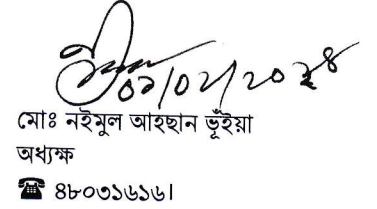 ০১/০২/২০২৪
মোঃ নইমুল আহছান ভূঁইয়া
অধ্যক্ষ
☎ ৪৮০৩১৬১৬।